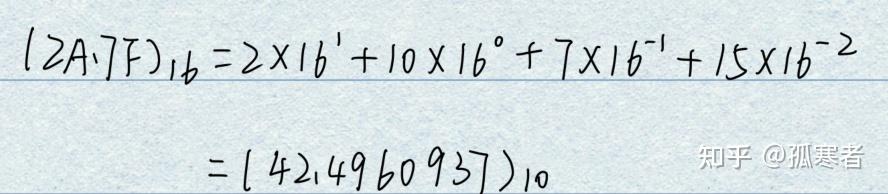 (2A.7F)₁₆ = 2×16¹ + 10×16⁰ + 7×16⁻¹ + 15×16⁻²
= (42.4960937)₁₀
知乎 @孤寒者